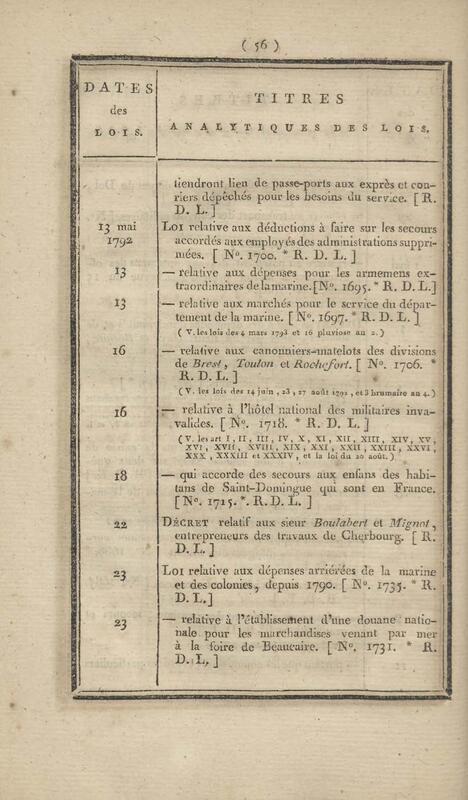 ( 56 )
DATES
des
LOIS.
TITRES
ANALYTIQUES DES LOIS.
tiendront lien de passe-ports aux exprès et cou-
riers dépêchés pour les besoins du service. [ R.
D. L. ]
13 mai
1792
LOI relative aux déductions à faire sur les secours
accordés aux employés des administrations suppri-
mées. [ N°. 1700. * R. D. L. ]
13
— relative aux dépenses pour les armemens ex-
traordinaires de la marine. [N°. 1695. * R. D. L.]
13
— relative aux marchés pour le service du dépar-
tement de la marine. [ N°. 1697. * R. D. L. ]
( V. les lois des 4 mars 1793 et 16 pluviose an 2. )
16
— relative aux canonniers-matelots des divisions
de Brest, Toulon et Rochefort. [ N°. 1706. *
R. D. L. ]
( V. les lois des 14 juin, 23, 27 août 1792, et 3 brumaire an 4. )
16
— relative à l'hôtel national des militaires inva-
valides. [ N°. 1718. * R. D. L. ]
( V. les art I, II, III, IV, X, XI, XII, XIII, XIV, XV,
XVI, XVII, XVIII, XIX, XXI, XXII, XXIII, XXVI,
XXX, XXXIII et XXXIV, et la loi du 20 août. )
18
— qui accorde des secours aux enfans des habi-
tans de Saint-Domingue qui sont en France.
[ N°. 1715. *. R. D. L. ]
22
DÉCRET relatif aux sieur Boulabert et Mignot,
entrepreneurs des travaux de Cherbourg. [ R.
D. L. ]
23
LOI relative aux dépenses arriérées de la marine
et des colonies, depuis 1790. [ N°. 1735. * R.
D. L.]
23
— relative à l'établissement d'une douane natio-
nale pour les marchandises venant par mer
à la foire de Beaucaire. [ N°. 1731. * R.
D. L. ]